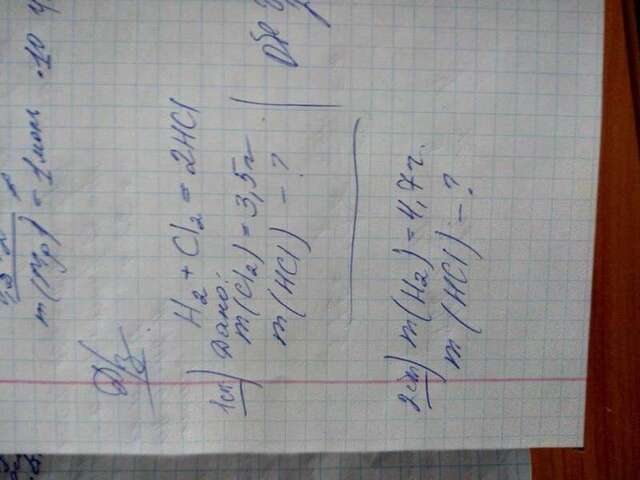 = 1 моль · 10
Д/з
H₂ + Cl₂ = 2HCl
1сп) Дано:
m(Cl₂) = 3,5г
m(HCl) - ?
2сп) m(H₂) = 4,7г.
m(HCl) - ?